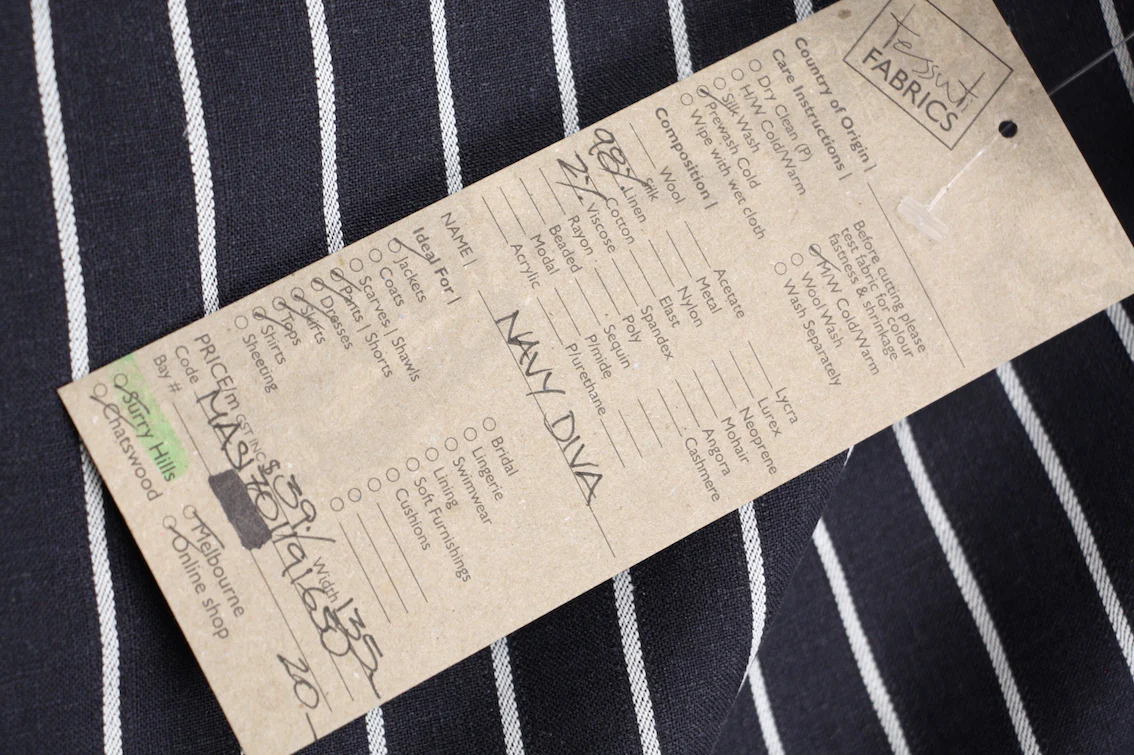 Tessuti
FABRICS
Country of Origin |
Care Instructions |
Dry Clean (P)
H/W Cold/Warm
Silk Wash
Prewash Cold
Wipe with wet cloth
Before cutting please
test fabric for colour
fastness & shrinkage
M/W Cold/Warm
Wool Wash
Wash Separately
Composition |
Silk
Wool
98% Linen
Cotton
2% Viscose
Rayon
Beaded
Modal
Acrylic
Acetate
Metal
Nylon
Elast
Spandex
Poly
Sequin
P/mide
P/urethane
Lycra
Lurex
Neoprene
Mohair
Angora
Cashmere
NAME | NAVY DIVA
Ideal For |
Jackets
Coats
Scarves | Shawls
Pants | Shorts
Dresses
Skirts
Tops
Shirts
Sheeting
Bridal
Lingerie
Swimwear
Lining
Soft Furnishings
Cushions
PRICE/m GST INC $39/ Width 135
Code
Bay # 20
Surry Hills
Chatswood
Melbourne
Online shop